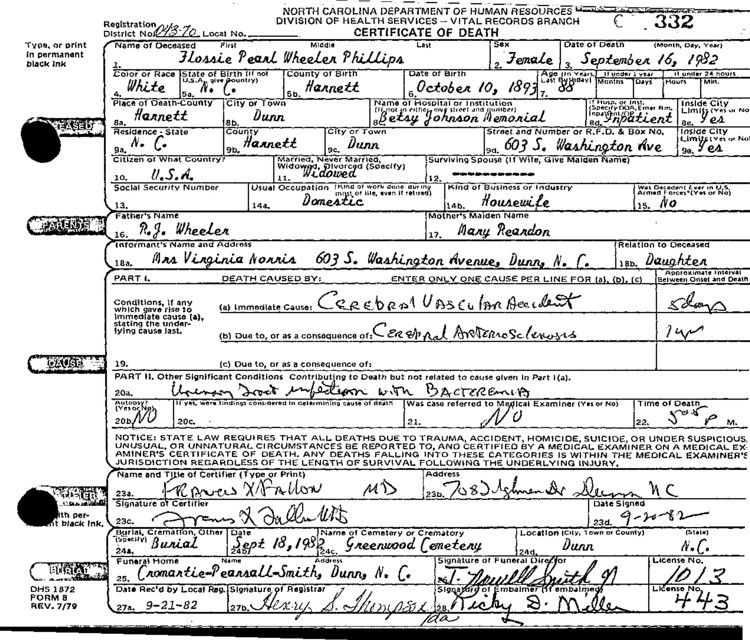 NORTH CAROLINA DEPARTMENT OF HUMAN RESOURCES
DIVISION OF HEALTH SERVICES – VITAL RECORDS BRANCH
C 332
Registration District No. 043-70 Local No.
CERTIFICATE OF DEATH
Type, or print in permanent black ink
Name of Deceased First Middle Last Sex Date of Death (Month, Day, Year)
1. Flossie Pearl Wheeler Phillips 2. Female 3. September 16, 1982
Color or Race State of Birth (If not U.S.A. give Country) County of Birth Date of Birth Age (In Years, Last Birthday) If under 1 year If under 24 hours
Months Days Hours Min.
4. White 5a. N. C. 5b. Harnett 6. October 10, 1893 7. 88
Place of Death-County City or Town Name of Hospital or Institution (If not in either, give street and number) If Hosp. or Inst. Inside City Limits (Yes or No)
8a. Harnett 8b. Dunn 8c. Betsy Johnson Memorial 8d. Inpatient 8e. Yes
DECEASED
Residence - State County City or Town Street and Number or R.F.D. & Box No. Inside City Limits (Yes or No)
9a. N. C. 9b. Harnett 9c. Dunn 9d. 603 S. Washington Ave 9e. Yes
Citizen of What Country? Married, Never Married, Widowed, Divorced (Specify) Surviving Spouse (If Wife, Give Maiden Name)
10. U.S.A. 11. Widowed 12. ------------
Social Security Number Usual Occupation (Kind of work done during most of life, even if retired) Kind of Business or Industry Was Decedent Ever in U.S. Armed Forces? (Yes or No)
13. 14a. Domestic 14b. Housewife 15. No
PARENTS
Father's Name Mother's Maiden Name
16. R.J. Wheeler 17. Mary Reardon
Informant's Name and Address Relation to Deceased
18a. Mrs Virginia Norris 603 S. Washington Avenue, Dunn, N. C. 18b. Daughter
PART I. DEATH CAUSED BY: ENTER ONLY ONE CAUSE PER LINE FOR (a), (b), (c) Approximate Interval Between Onset and Death
Conditions, if any which gave rise to immediate cause (a), stating the underlying cause last.
(a) Immediate Cause: Cerebral Vascular Accident 5 days
(b) Due to, or as a consequence of: Cerebral Arteriosclerosis 1 yr
CAUSE
19. (c) Due to, or as a consequence of:
PART II. Other Significant Conditions Contributing to Death but not related to cause given in Part I(a).
20a. Urinary Tract infection with BACTEREMIA
Autopsy? (Yes or No) If yes, were findings considered in determining cause of death Was case referred to Medical Examiner (Yes or No) Time of Death
20b. NO 20c. 21. NO 22. P M.
NOTICE: STATE LAW REQUIRES THAT ALL DEATHS DUE TO TRAUMA, ACCIDENT, HOMICIDE, SUICIDE, OR UNDER SUSPICIOUS,
UNUSUAL, OR UNNATURAL CIRCUMSTANCES BE REPORTED TO, AND CERTIFIED BY A MEDICAL EXAMINER ON A MEDICAL EX-
AMINER'S CERTIFICATE OF DEATH. ANY DEATHS FALLING INTO THESE CATEGORIES IS WITHIN THE MEDICAL EXAMINER'S
JURISDICTION REGARDLESS OF THE LENGTH OF SURVIVAL FOLLOWING THE UNDERLYING INJURY.
Name and Title of Certifier (Type or Print) Address
23a. FRANCIS X FALLON MD 23b. 708 Dr Dunn NC
Signature of Certifier Date Signed
23c. Francis X Fallon MD 23d. 9-20-82
black ink.
Burial, Cremation, Other (Specify) Date Name of Cemetery or Crematory Location (City, Town or County) (State)
24a. Burial 24b. Sept 18, 1982 24c. Greenwood Cemetery 24d. Dunn N.C.
BURIAL
Funeral Home Name Address Signature of Funeral Director License No.
25. Cromartie-Pearsall-Smith, Dunn, N. C. 26. J. Nowell Smith Jr 1013
DHS 1872
FORM 8
REV. 7/79
Date Rec'd by Local Reg. Signature of Registrar Signature of Embalmer (If embalmed) License No.
27a. 9-21-82 27b. Henry S. Thompson 28. Ricky D. Miller 443